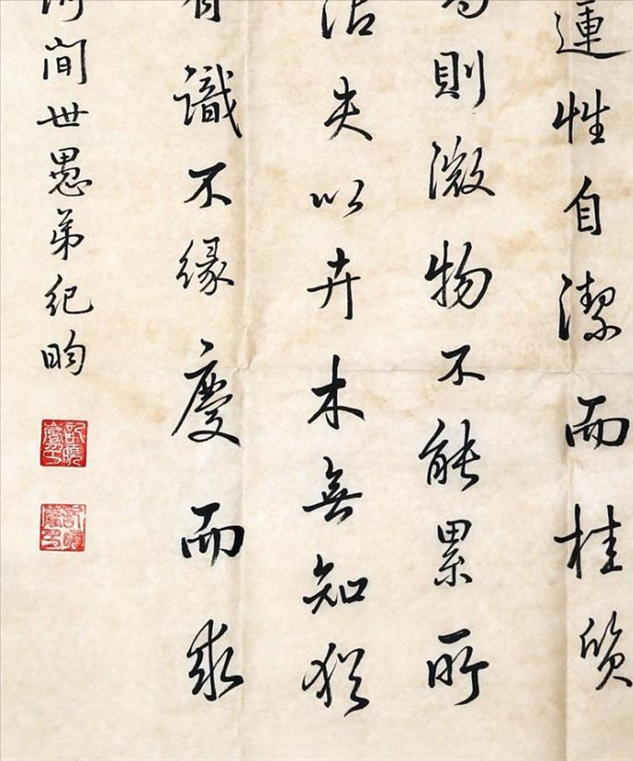 連性自潔而桂質
則微物不能累所
沾夫以卉木無知猶
有識不緣慶而求
河間世愚弟紀昀